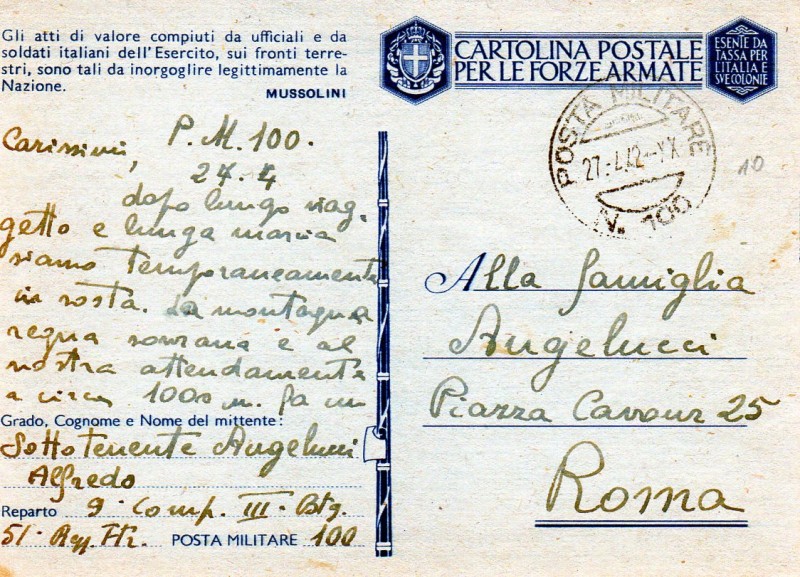 Gli atti di valore compiuti da ufficiali e da
soldati italiani dell'Esercito, sui fronti terre-
stri, sono tali da inorgoglire legittimamente la
Nazione.
MUSSOLINI
CARTOLINA POSTALE
PER LE FORZE ARMATE
ESENTE DA
TASSA PER
L'ITALIA E
SVE COLONIE
POSTA MILITARE
27.4.42-XX
N. 100
10
P. M. 100.
Carissimi,
27.4
dopo lungo viag-
getto e lunga marcia
siamo temporaneamente
in sosta. La montagna
regna sovrana e al
nostra attendamento
a circa 1000 m. fa un
Grado, Cognome e Nome del mittente:
Sottotenente Angelucci
Alfredo
Reparto 9ª Comp. III- Btg.
51º Regg. Ftr. POSTA MILITARE 100
Alla famiglia
Angelucci
Piazza Cavour 25
Roma